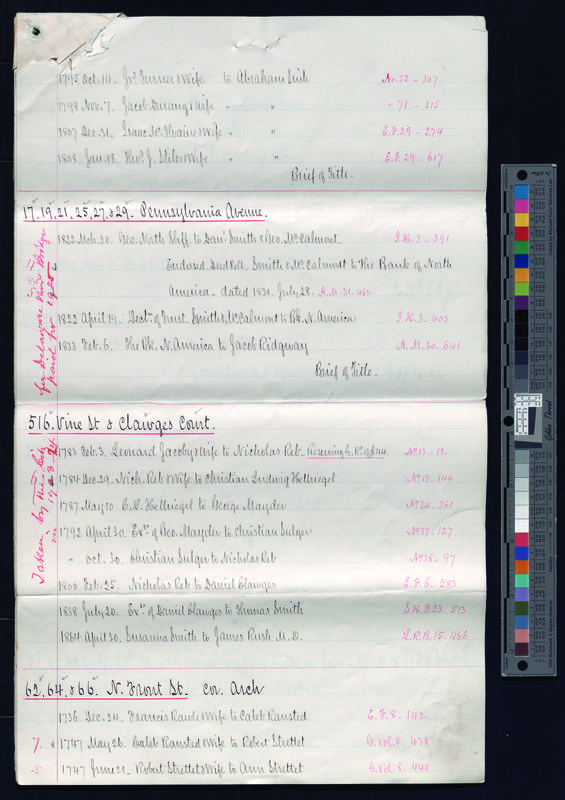 1795 Oct. 14. Jos. Turner & Wife to Abraham Smith No. 52 - 307
1798 Nov. 7. Jacob Durang & Wife " " " 71 - 315
1807 Dec. 31. Isaac McIlvain & Wife " " E.F. 29 - 274
1808. Jan. 18. Thos. J. Stiles & Wife " " E.F. 29 - 617
Brief of Title -
17, 19, 21, 25, 27, & 29. Pennsylvania Avenue.
1822 Mch. 20. Geo. Nath Shff. to Danl. Smith & Geo. McCalmont. I.H. 3 - 391
Endorsed Deed Poll. Smith & McCalmont to The Bank of North
America - dated 1831 July 28. A.M. 31. 462
1822 April 19. Decln. of Trust. Smith & McCalmont to Bk. N. America I.H. 3 - 403
1833 Feb. 6. The Bk. N. America to Jacob Ridgway A.M. 30 - 641
Brief of Title -
for Delaware River Bridge
paid for 1920
516. Vine St & Clawges Court.
1783 Feb. 3. Leonard Jacoby & Wife to Nicholas Reb - Reserving G. Rt. of £14. No 13 - 12
1784 Dec. 29. Nich. Reb & Wife to Christian Ludwig Hellriegel No 13 - 146
1787 May 10 C. L. Hellriegel to George Mayder No 34 - 361
1792 April 30. Exrs. of Geo. Mayder to Christian Sulger No 37 - 127
" Oct. 30. Christian Sulger to Nicholas Reb No 38 - 97
1800 Feb. 25. Nicholas Reb to Daniel Clawges E.F. 6 - 283
1838 July 20. Exrs. of Daniel Clawges to Thomas Smith S.H.F. 23 - 513
1864 April 30. Susanna Smith to James Rush M.D. L.R.B. 15 - 466
Taken by the City
in 1923-24
62, 64, & 66. N. Front St. cor. Arch
1736. Dec. 24. Francis Rawle & Wife to Caleb Ransted E.F. 8 - 142
7. & 1747 May 26. Caleb Ransted & Wife to Robert Strettel G. Vol. 8 - 438
& 1747 June 21. Robert Strettel & Wife to Ann Strettel G. Vol. 8 - 440